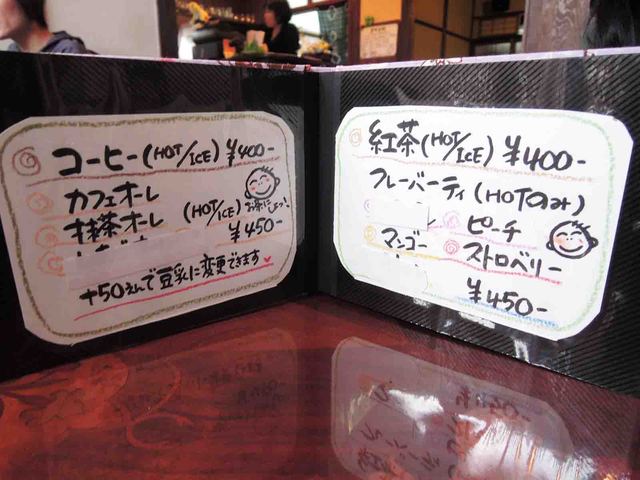 コーヒー(HOT/ICE) ¥400-
カフェオーレ
抹茶オーレ
(HOT/ICE)
¥450-
お茶にしよっ!
+50えんで豆乳に変更できます
紅茶(HOT/ICE) ¥400-
フレーバーティ(HOTのみ)
ピーチ
マンゴー
ストロベリー
¥450-